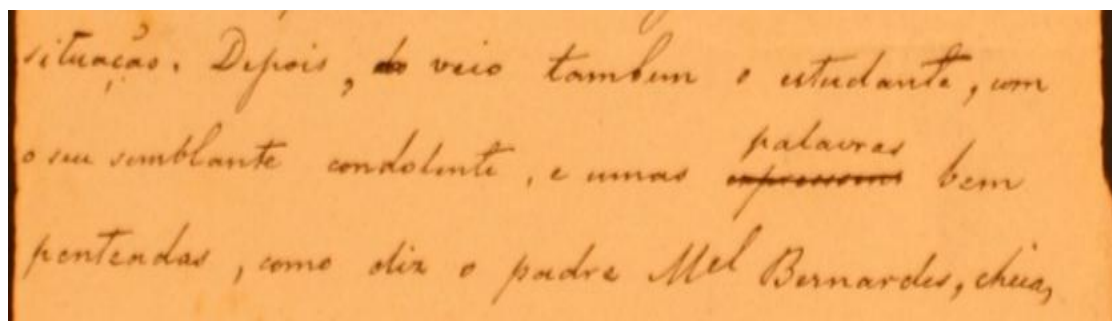 situação. Depois, veio tambem o estudante, com
o seu semblante condolente, e umas palavras expressoens bem
penteadas, como diz o padre Mel Bernardes, cheias,